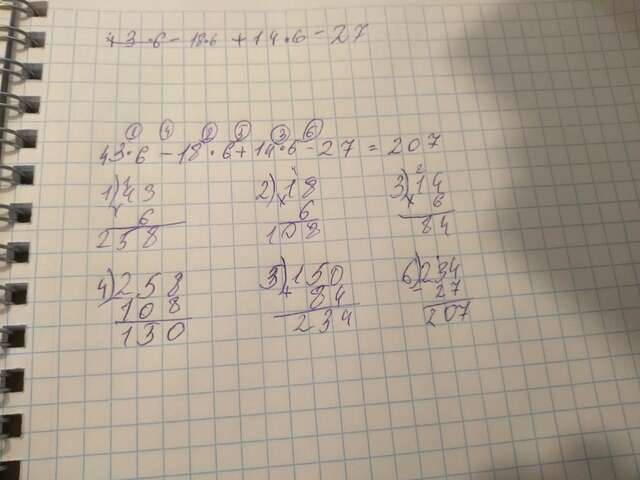 43·6-18·6+14·6-27
1 4 2 5 3 6
43·6-18·6+14·6-27=207
1) 43 2) 18 3) 14
x 6 x 6 x 6
258 108 84
4) 258 3) 150 6) 234
- 108 + 84 - 27
130 234 207